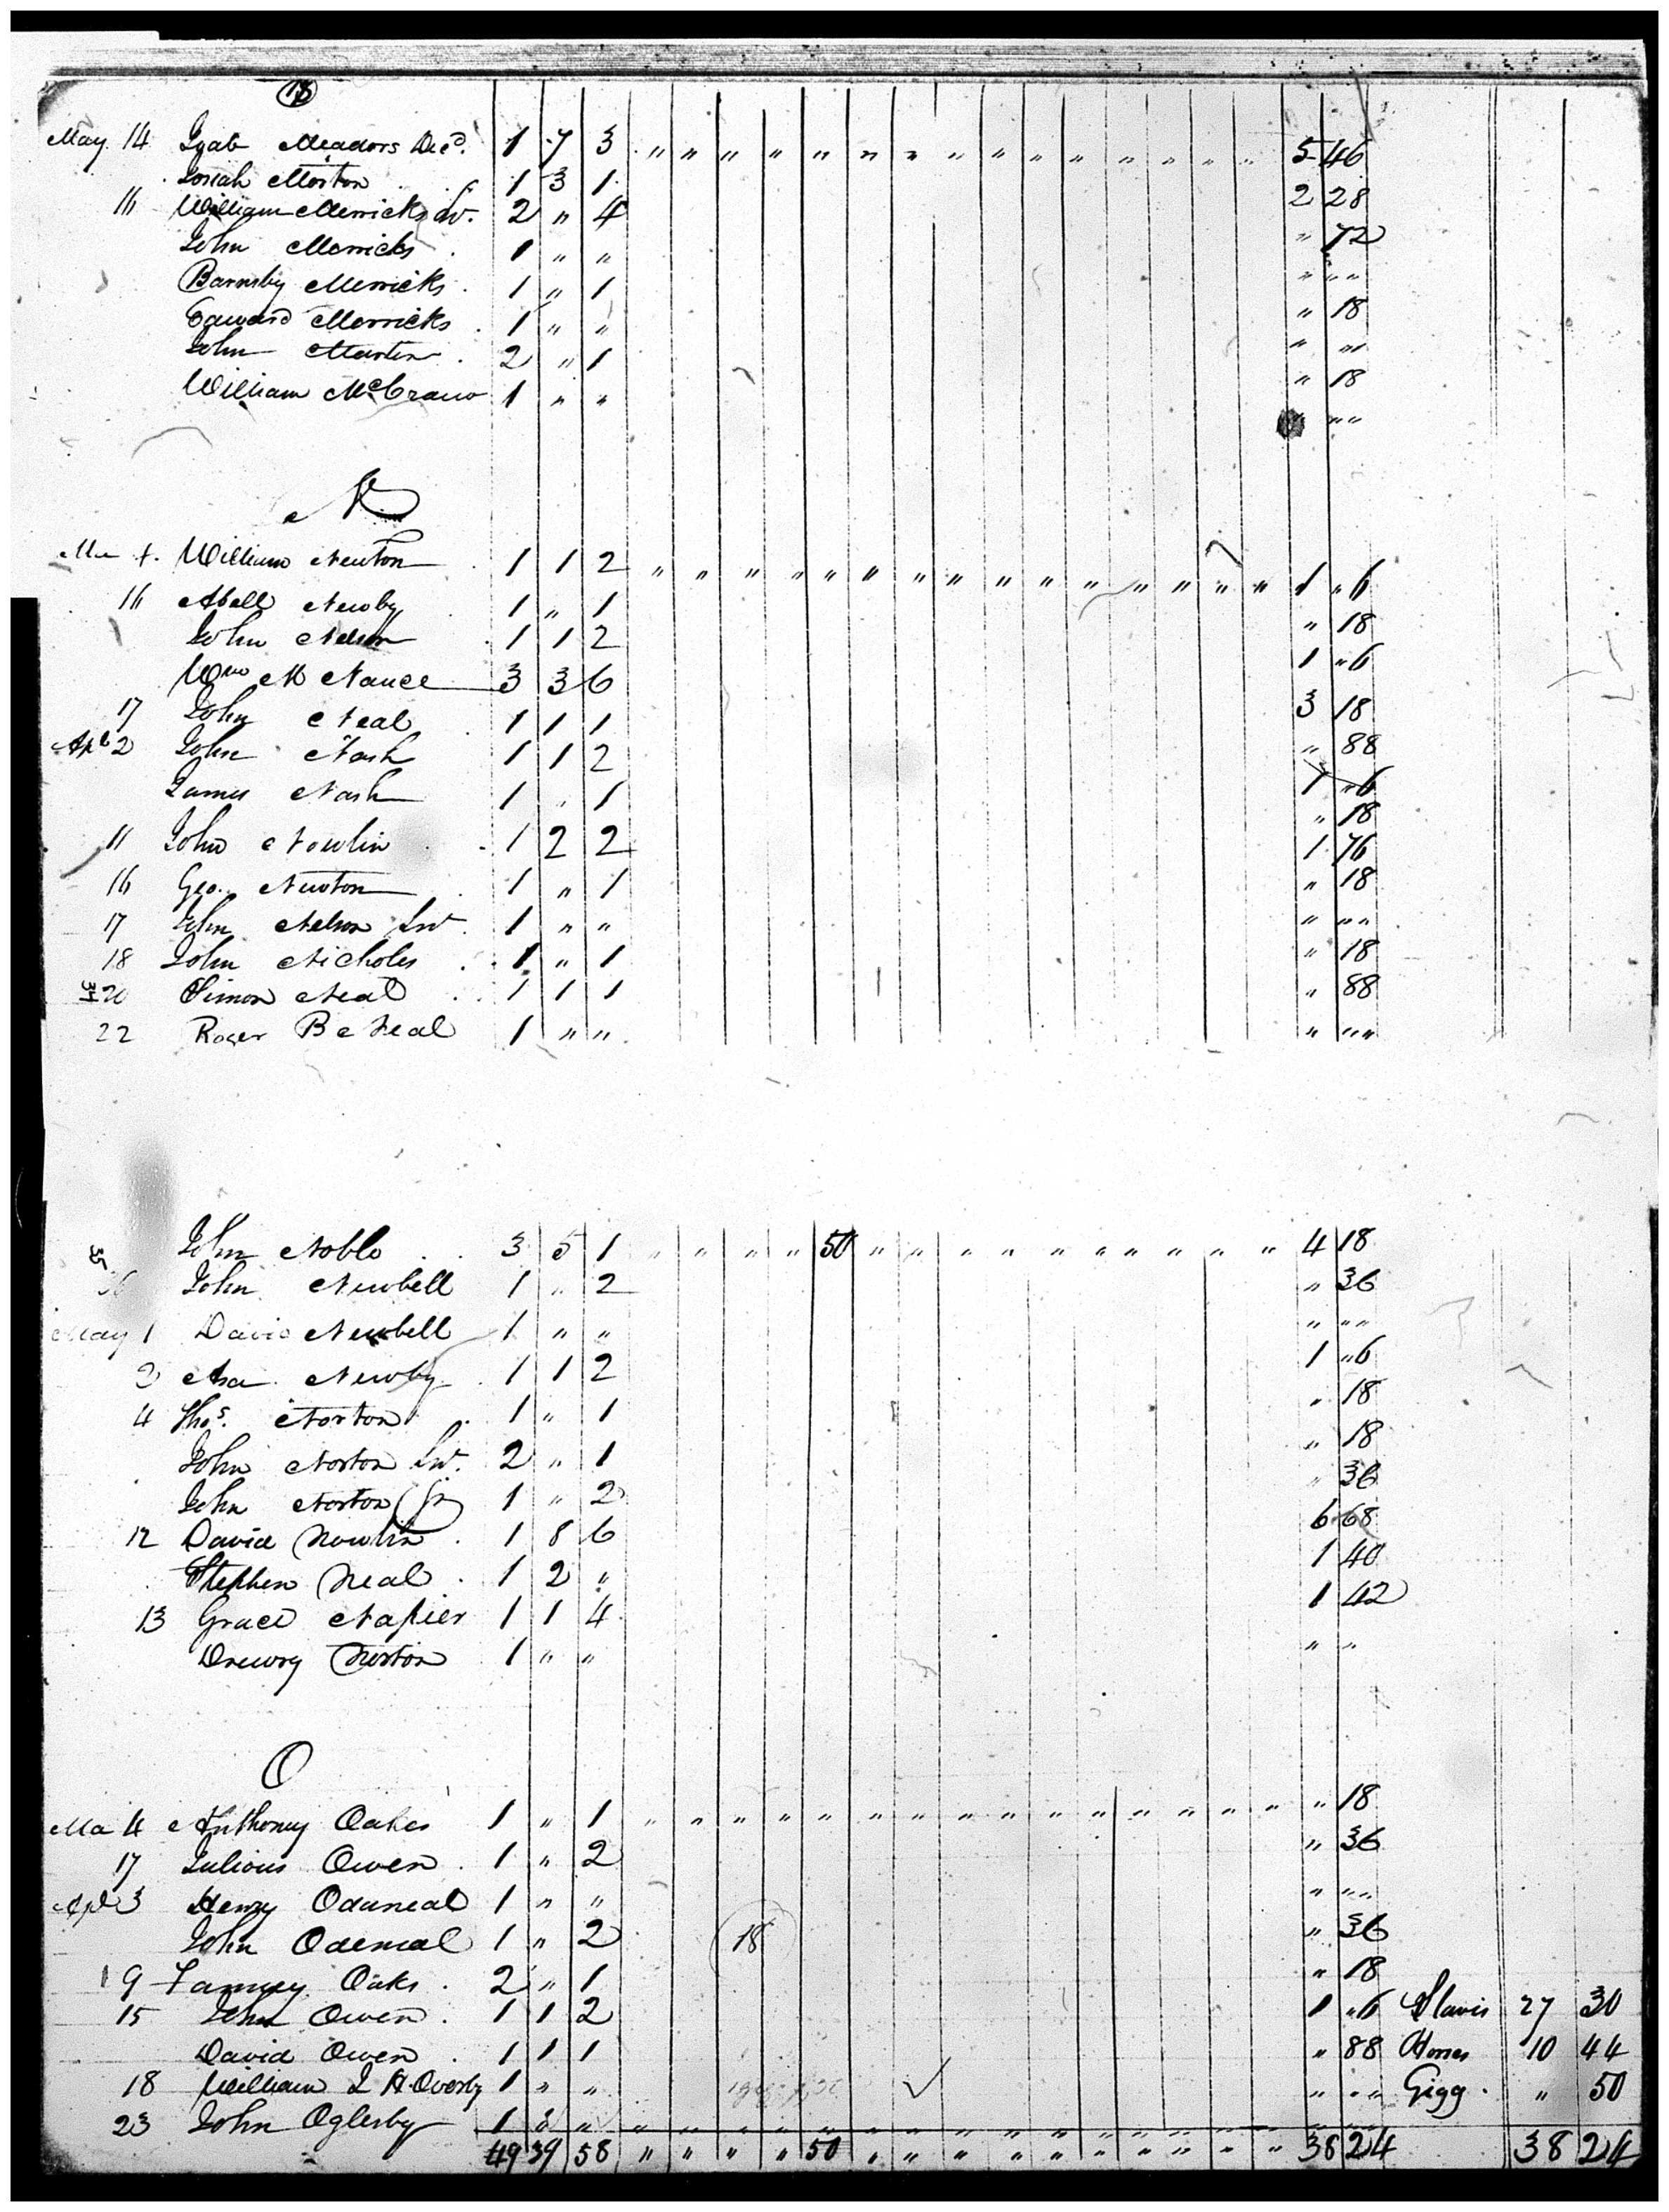 18
May 14 Meadors Decd. 1 7 3 " " " " " " " " " " " " " " 5 46
Josiah Morton 1 3 1 2 28
16 William Merricks Sr. 2 " 4 " 72
John Merricks 1 " " " " "
Barnsby Merricks 1 " 1 " 18
Edward Merricks 1 " " " " "
John Martin 2 " 1 " 18
William McCraw 1 " " " " "
N
William Newton 1 1 2 " " " " " " " " " " " " " " 1 " 6
16 Abell Newby 1 " 1 " 18
John Nelson 1 1 2 1 " 6
Wm M Nance 3 3 6 3 18
17 John Neal 1 1 1 " 88
Apl 2 John Nash 1 1 2 1 " 6
James Nash 1 " 1 " 18
11 John Nowlin 1 2 2 1 76
16 Geo. Newton 1 " 1 " 18
17 John Nelson Snr 1 " " " " "
18 John Nicholes 1 " 1 " 18
20 Simon Neal 1 1 1 " 88
22 Roger B Neal 1 " " " " "
John Noble 3 5 1 " " " " 50 " " " " " " " " " " 4 18
John Newbell 1 " 2 " 36
May 1 David Newbell 1 " " " " "
2 Asa Newby 1 1 2 1 " 6
4 Thos. Norton 1 " 1 " 18
John Norton Snr. 2 " 1 " 18
John Norton Jr 1 " 2 " 36
12 David Nowlin 1 8 6 6 68
Stephen Neal 1 2 " 1 40
13 Grace Napier 1 1 4 1 42
Drewry Norton 1 " " " "
O
Ma 4 Anthony Oakes 1 " 1 " " " " " " " " " " " " " " " 18
17 Julious Owen 1 " 2 " 36
Apl 3 Henry Odaneal 1 " " " " "
John Odeneal 1 " 2 18 " 36
9 Oaks 2 " 1 " 18
15 John Owen 1 1 2 1 " 6 Slaves 27 30
David Owen 1 1 1 " 88 Horses 10 44
18 William L H Overby 1 " " " " " Gigg " 50
23 John Oglesby 1 " " " " " " " " " " " " " " " " " "
49 39 58 " " " " 50 " " " " " " " " " " 38 24 38 24